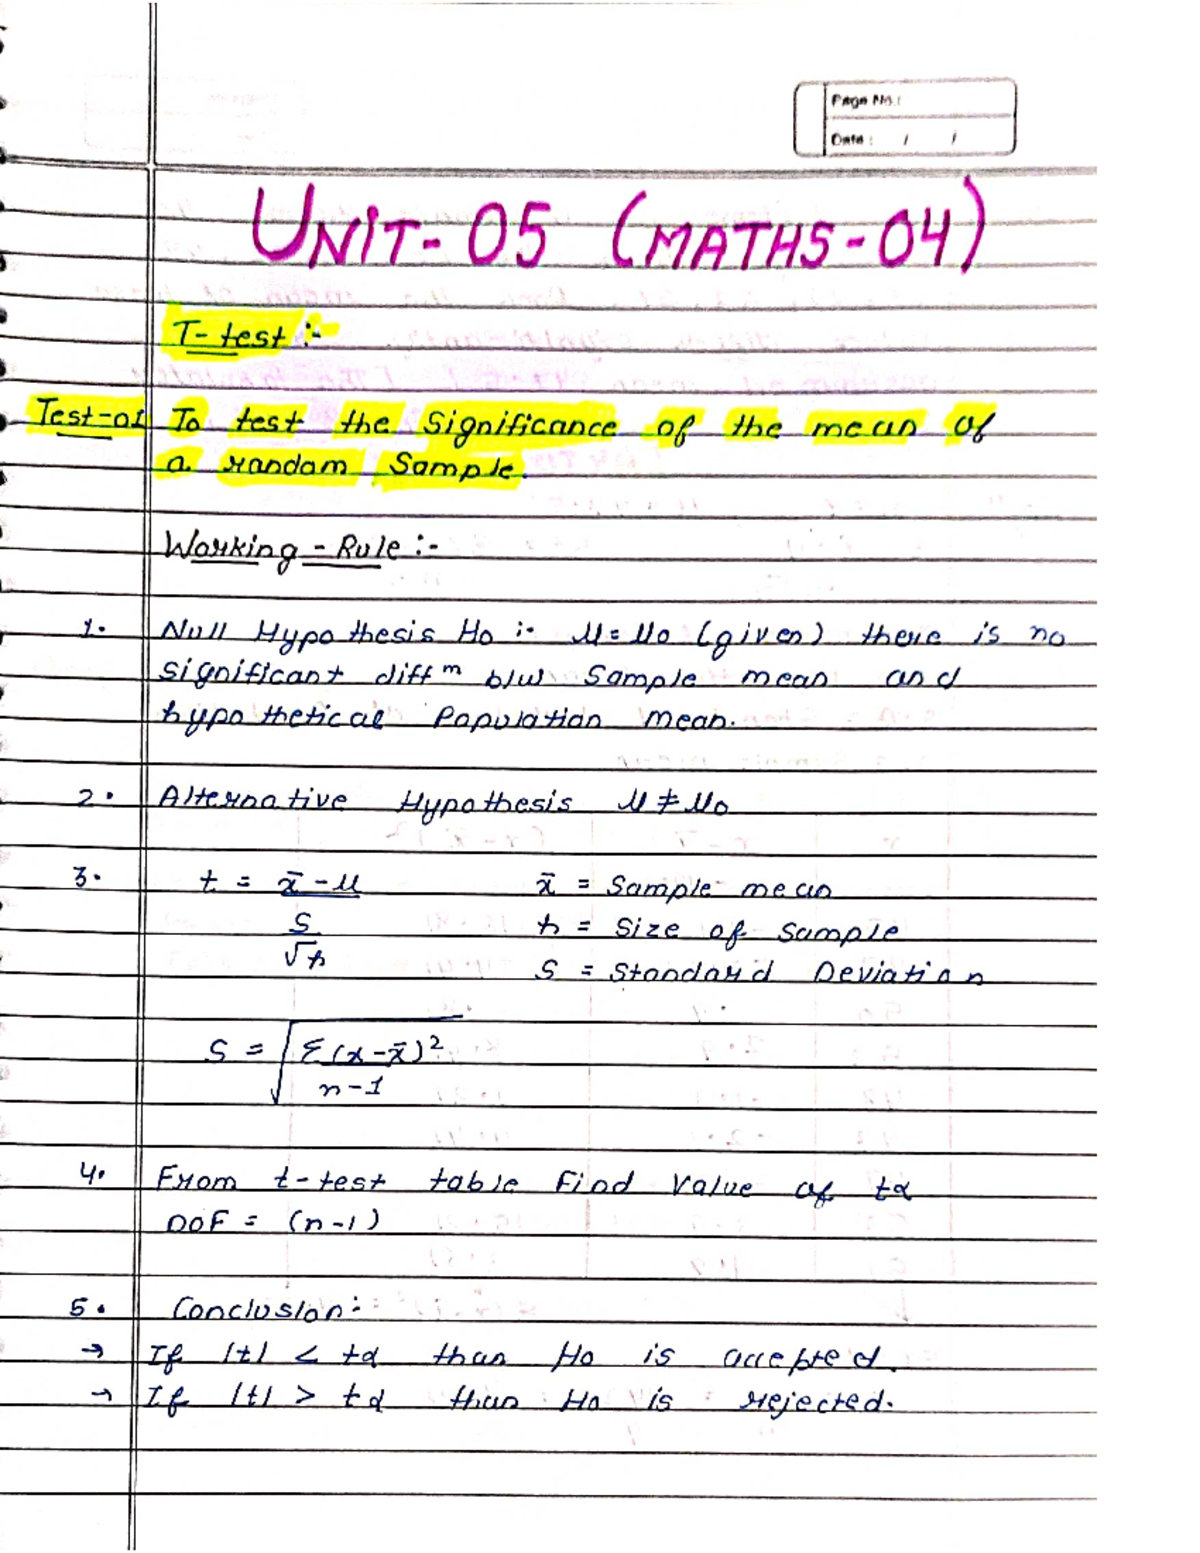 Page No.:
Date : / /
UNIT-05 (MATHS-04)
T-test :-
Test-01 To test the Significance of the mean of
a random Sample.
Working-Rule :-
1. Null Hypothesis Ho :- μ=μo (given) there is no
significant diffⁿ b/w Sample mean and
hypothetical Population mean.
2. Alternative Hypothesis μ≠μo
3. t = x̄-μ x̄ = Sample mean
S n = Size of sample
√n S = Standard Deviation
S = √Σ(x-x̄)²
n-1
4. From t-test table Find Value of tα
DOF = (n-1)
5. Conclusion:-
→ If |t| < tα than Ho is accepted.
→ If |t| > tα than Ho is rejected.